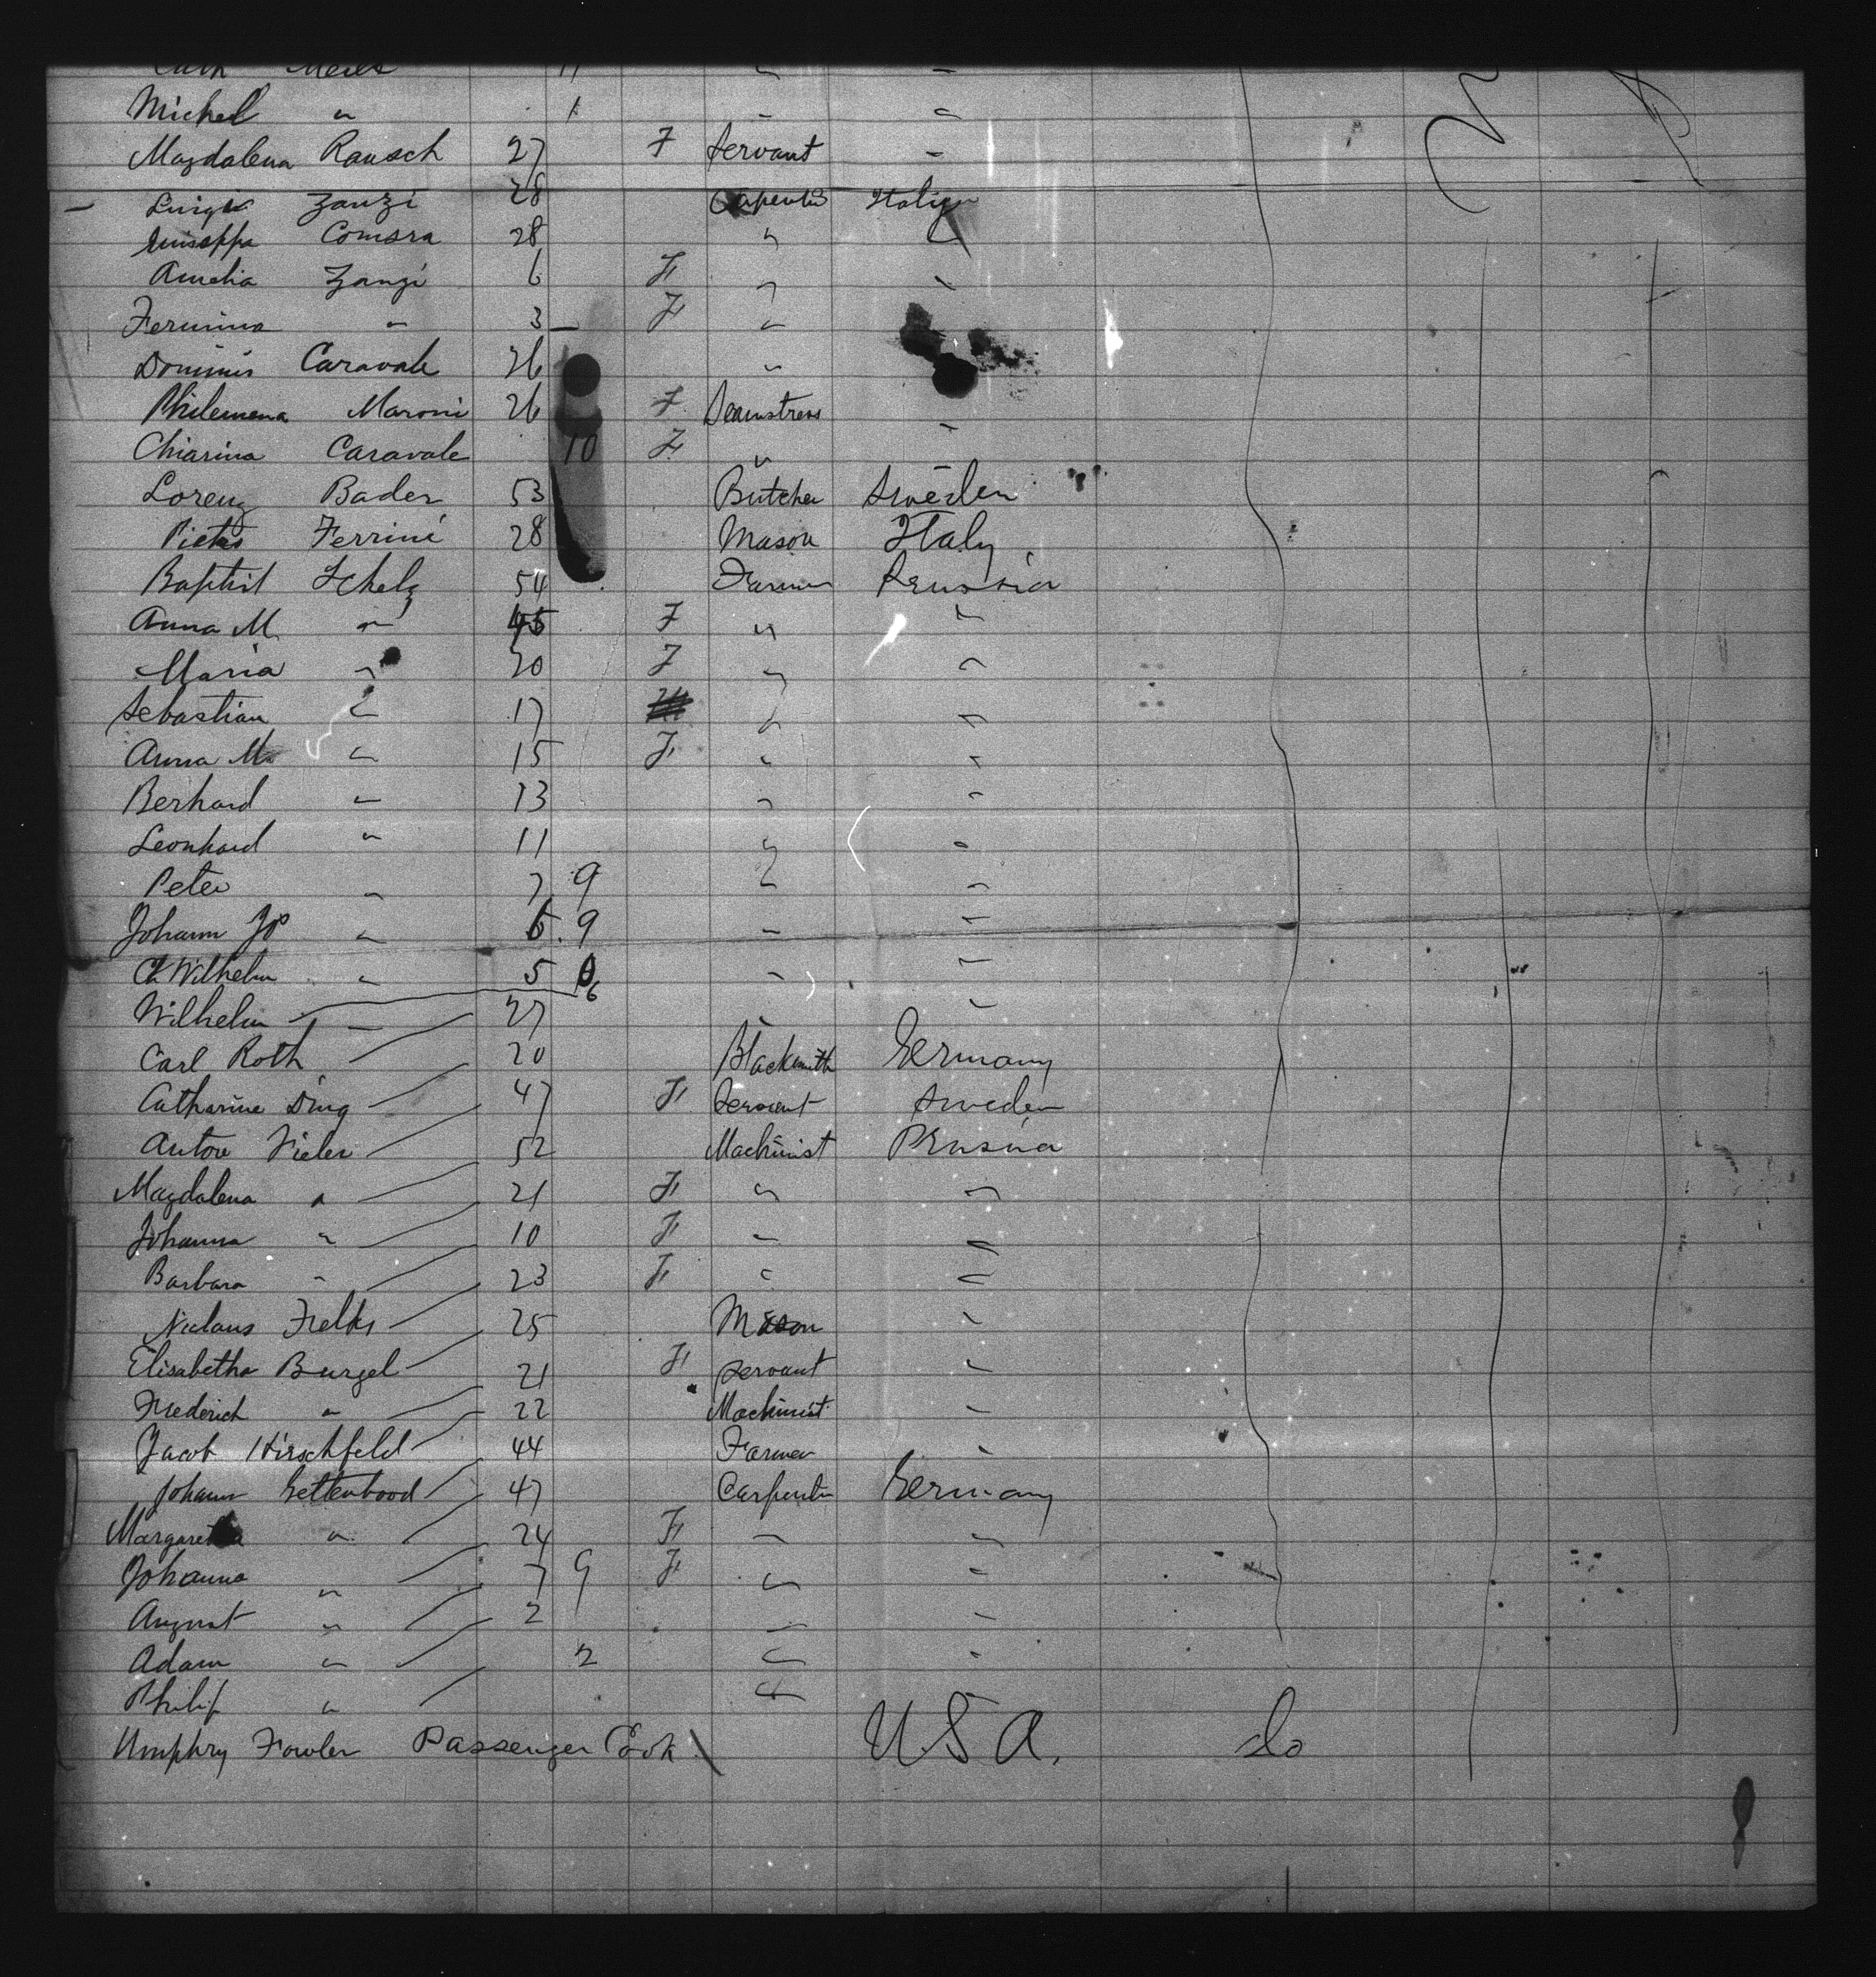 Michel " 1 " "
Magdalena Rausch 27 F Servant "
Luigi Zanzi 28 Italian
Comsra 28 " "
Amelia Zangi 6 F " "
Fermina " 3 F "
Dominis Caravale 26 "
Philemena Maroni 26 F Seamstress
Chiarina Caravale 10 F " "
Lorenz Bader 53 Butcher Sweden
Pietro Ferrini 28 Mason Italy
Baptist Schelz 54 Farmer Prussia
Anna M. " 45 F " "
Maria " 20 F " "
Sebastian " 17 " "
Anna M " 15 F " "
Berhard " 13 " "
Leonhard " 11 " "
Peter " 7 9 " "
Johann Jos " 6. 9 " "
Wilhelm " 5 6 " "
Wilhelm " 27 " "
Carl Roth 20 Blacksmith Germany
Catharine Ding 47 F Servant Sweden
Antone Fieler 52 Machinist Prussia
Magdalena " 21 F " "
Johanna " 10 F " "
Barbara " 23 F " "
Niclaus Felks 25 Mason "
Elisabetha Burgel 21 F Servant "
Frederich " 22 Machinist "
Jacob Hirschfeld 44 Farmer "
Johann Gettenbood 47 Carpenter Germany
Margaretha " 24 F " "
Johanna " 7 9 F " "
August " 2 " "
Adam " 2 " "
Philip " "
Umphry Fowler Passenger Cook U S A. do